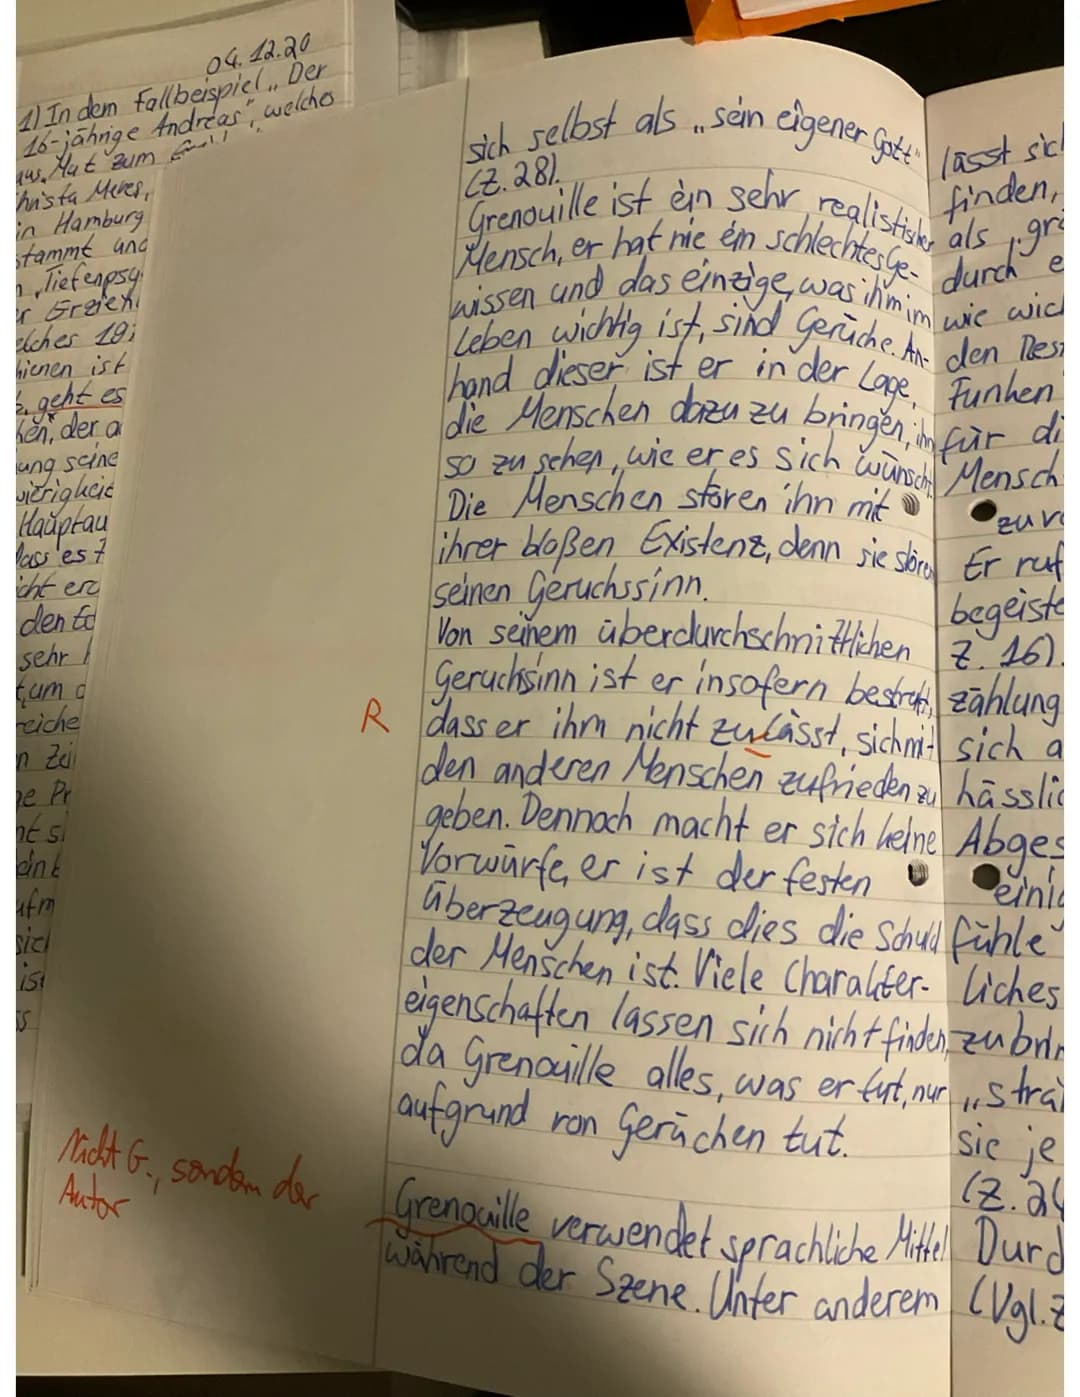 04.12.20
1) In dem Fallbeispiel „Der
16-jährige Andreas", welches
aus „Mut zum
Christa Meves,
in Hamburg
stammt und
„Tiefenpsy
r Erzieh
elches 19
hienen ist
geht es
hen, der a
ung seine
wierigkeit
Hauptau
dass es
icht erz
den Ed
sehr
tum
reiche
n Zei
ne Pr
nt s
eint
ufm
sich
ist
ss
sich selbst als „sein eigener Gott"
(Z. 28).
Grenouille ist ein sehr realistischer
Mensch, er hat nie ein schlechtes Ge-
wissen und das einzige, was ihm im
Leben wichtig ist, sind Gerüche. An-
hand dieser ist er in der Lage,
die Menschen dazu zu bringen, ihn
so zu sehen, wie er es sich wünscht.
Die Menschen stören ihn mit
ihrer bloßen Existenz, denn sie stören
seinen Geruchssinn.
Von seinem überdurchschnittlichen
Geruchsinn ist er insofern bestraft,
R
dass er ihm nicht zulässt, sich mit
den anderen Menschen zufrieden zu
geben. Dennoch macht er sich keine
Vorwürfe, er ist der festen
Überzeugung, dass dies die Schuld
der Menschen ist. Viele Charakter-
eigenschaften lassen sich nicht finden,
da Grenouille alles, was er tut, nur
aufgrund von Gerüchen tut.
Nicht G., sondern der
Autor
Grenouille verwendet sprachliche Mittel
während der Szene. Unter anderem
lässt sich
finden,
als „grö
durch e
wie wich
den Res
Funken
für di
Mensch
zu ve
Er ruf
begeiste
Z. 16).
zählung
sich a
hässlic
Abges
einig
fühle
liches
zu brin
„stra
sie je
(Z. 24
Durc
(Vgl. Z